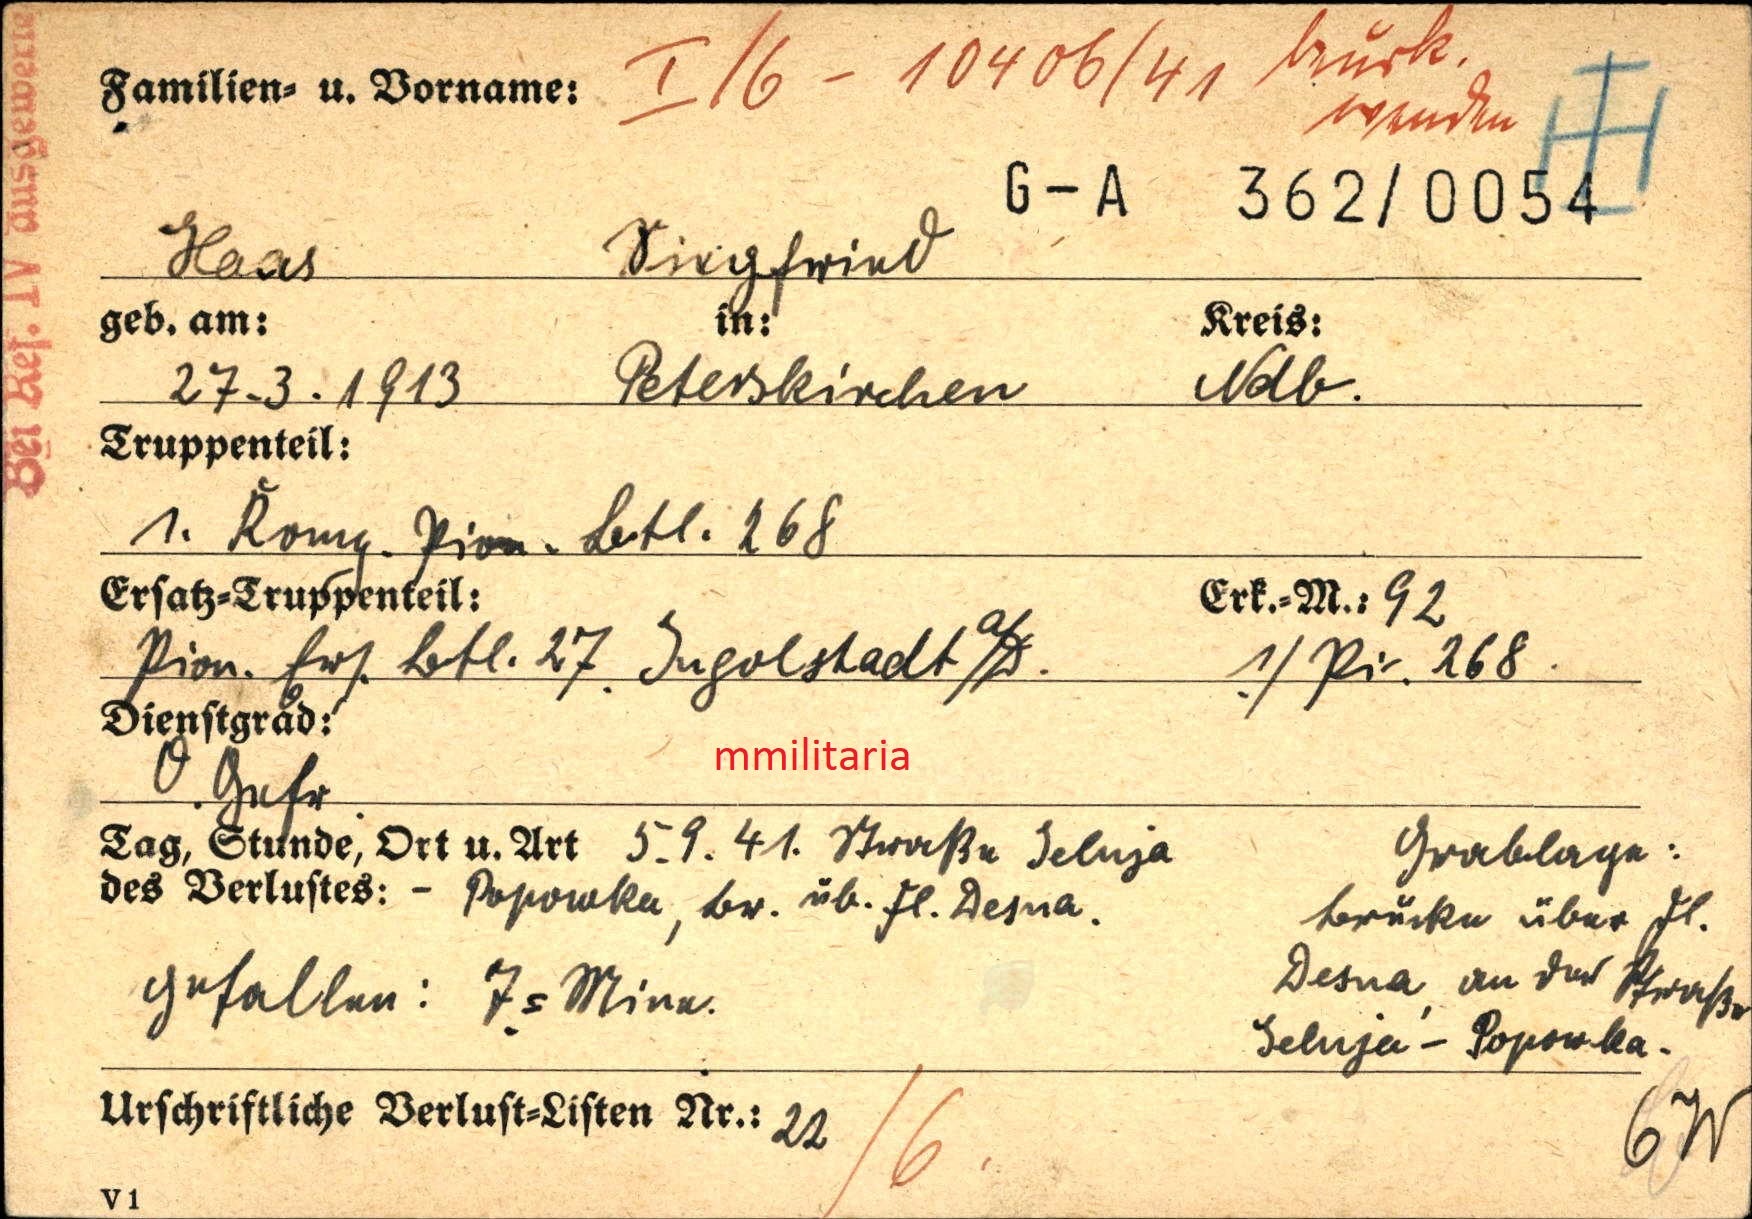 Bei Ref. IV ausgewertet
Familien- u. Vorname:
I/6 - 10406/41 beurk.
wenden
G-A 362/0054
Haas Siegfried
geb. am: in: Kreis:
27.3.1913 Peterskirchen Ndb.
Truppenteil:
1. Komp. Pion. Btl. 268
Ersatz-Truppenteil: Erk.-M.: 92
Pion. Ers. Btl. 27 Ingolstadt a/D. 1/ Pi. 268.
Dienstgrad:
O. Gefr.
mmilitaria
Tag, Stunde, Ort u. Art 5.9.41. Straße Jelnja
des Verlustes: - Popowka, br. üb. Fl. Desna.
Grablage:
brücke über Fl.
Desna, an der Straße
Jelnja - Popowka.
gefallen: 7 = Mine.
Urschriftliche Verlust-Listen Nr.: 22 /6.
V 1